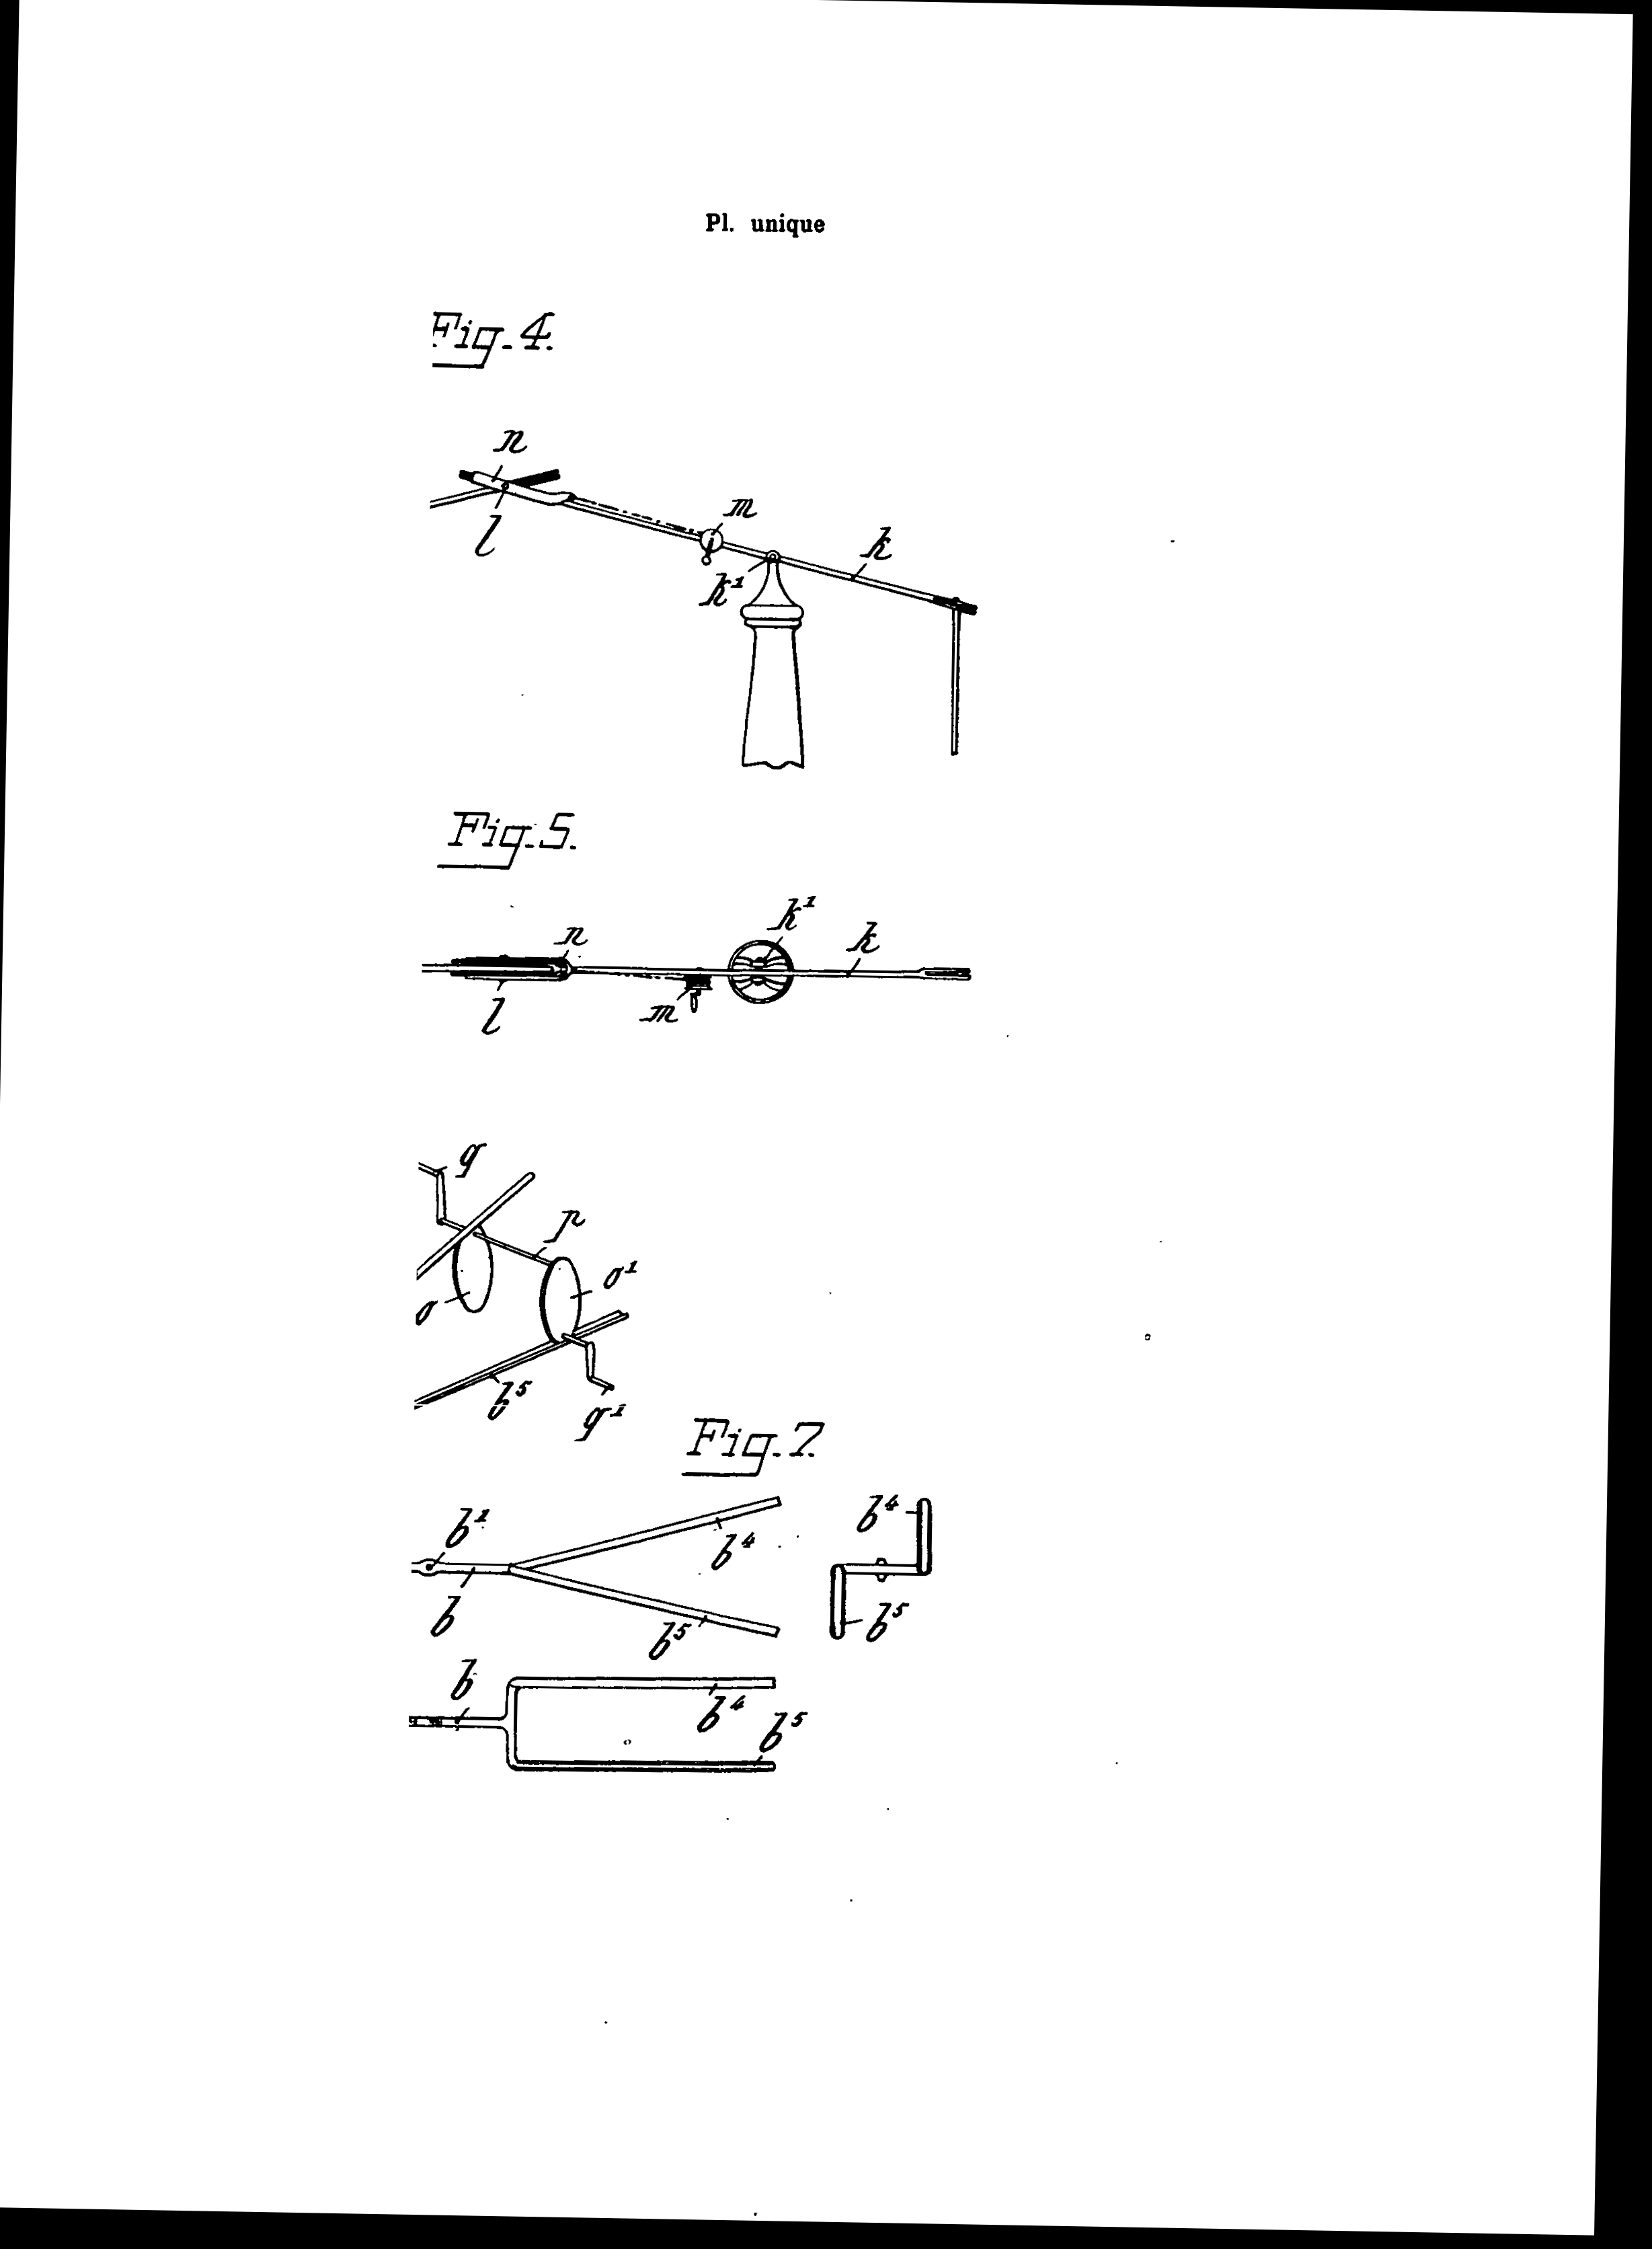 Pl. unique
Fig. 4.
n
l
m
k
k¹
Fig. 5.
k¹
k
n
l
m
q
p
o¹
o
b⁵
q¹
Fig. 7.
b¹
b⁴
b⁴
b
b⁵
b⁵
b
b⁴
b⁵